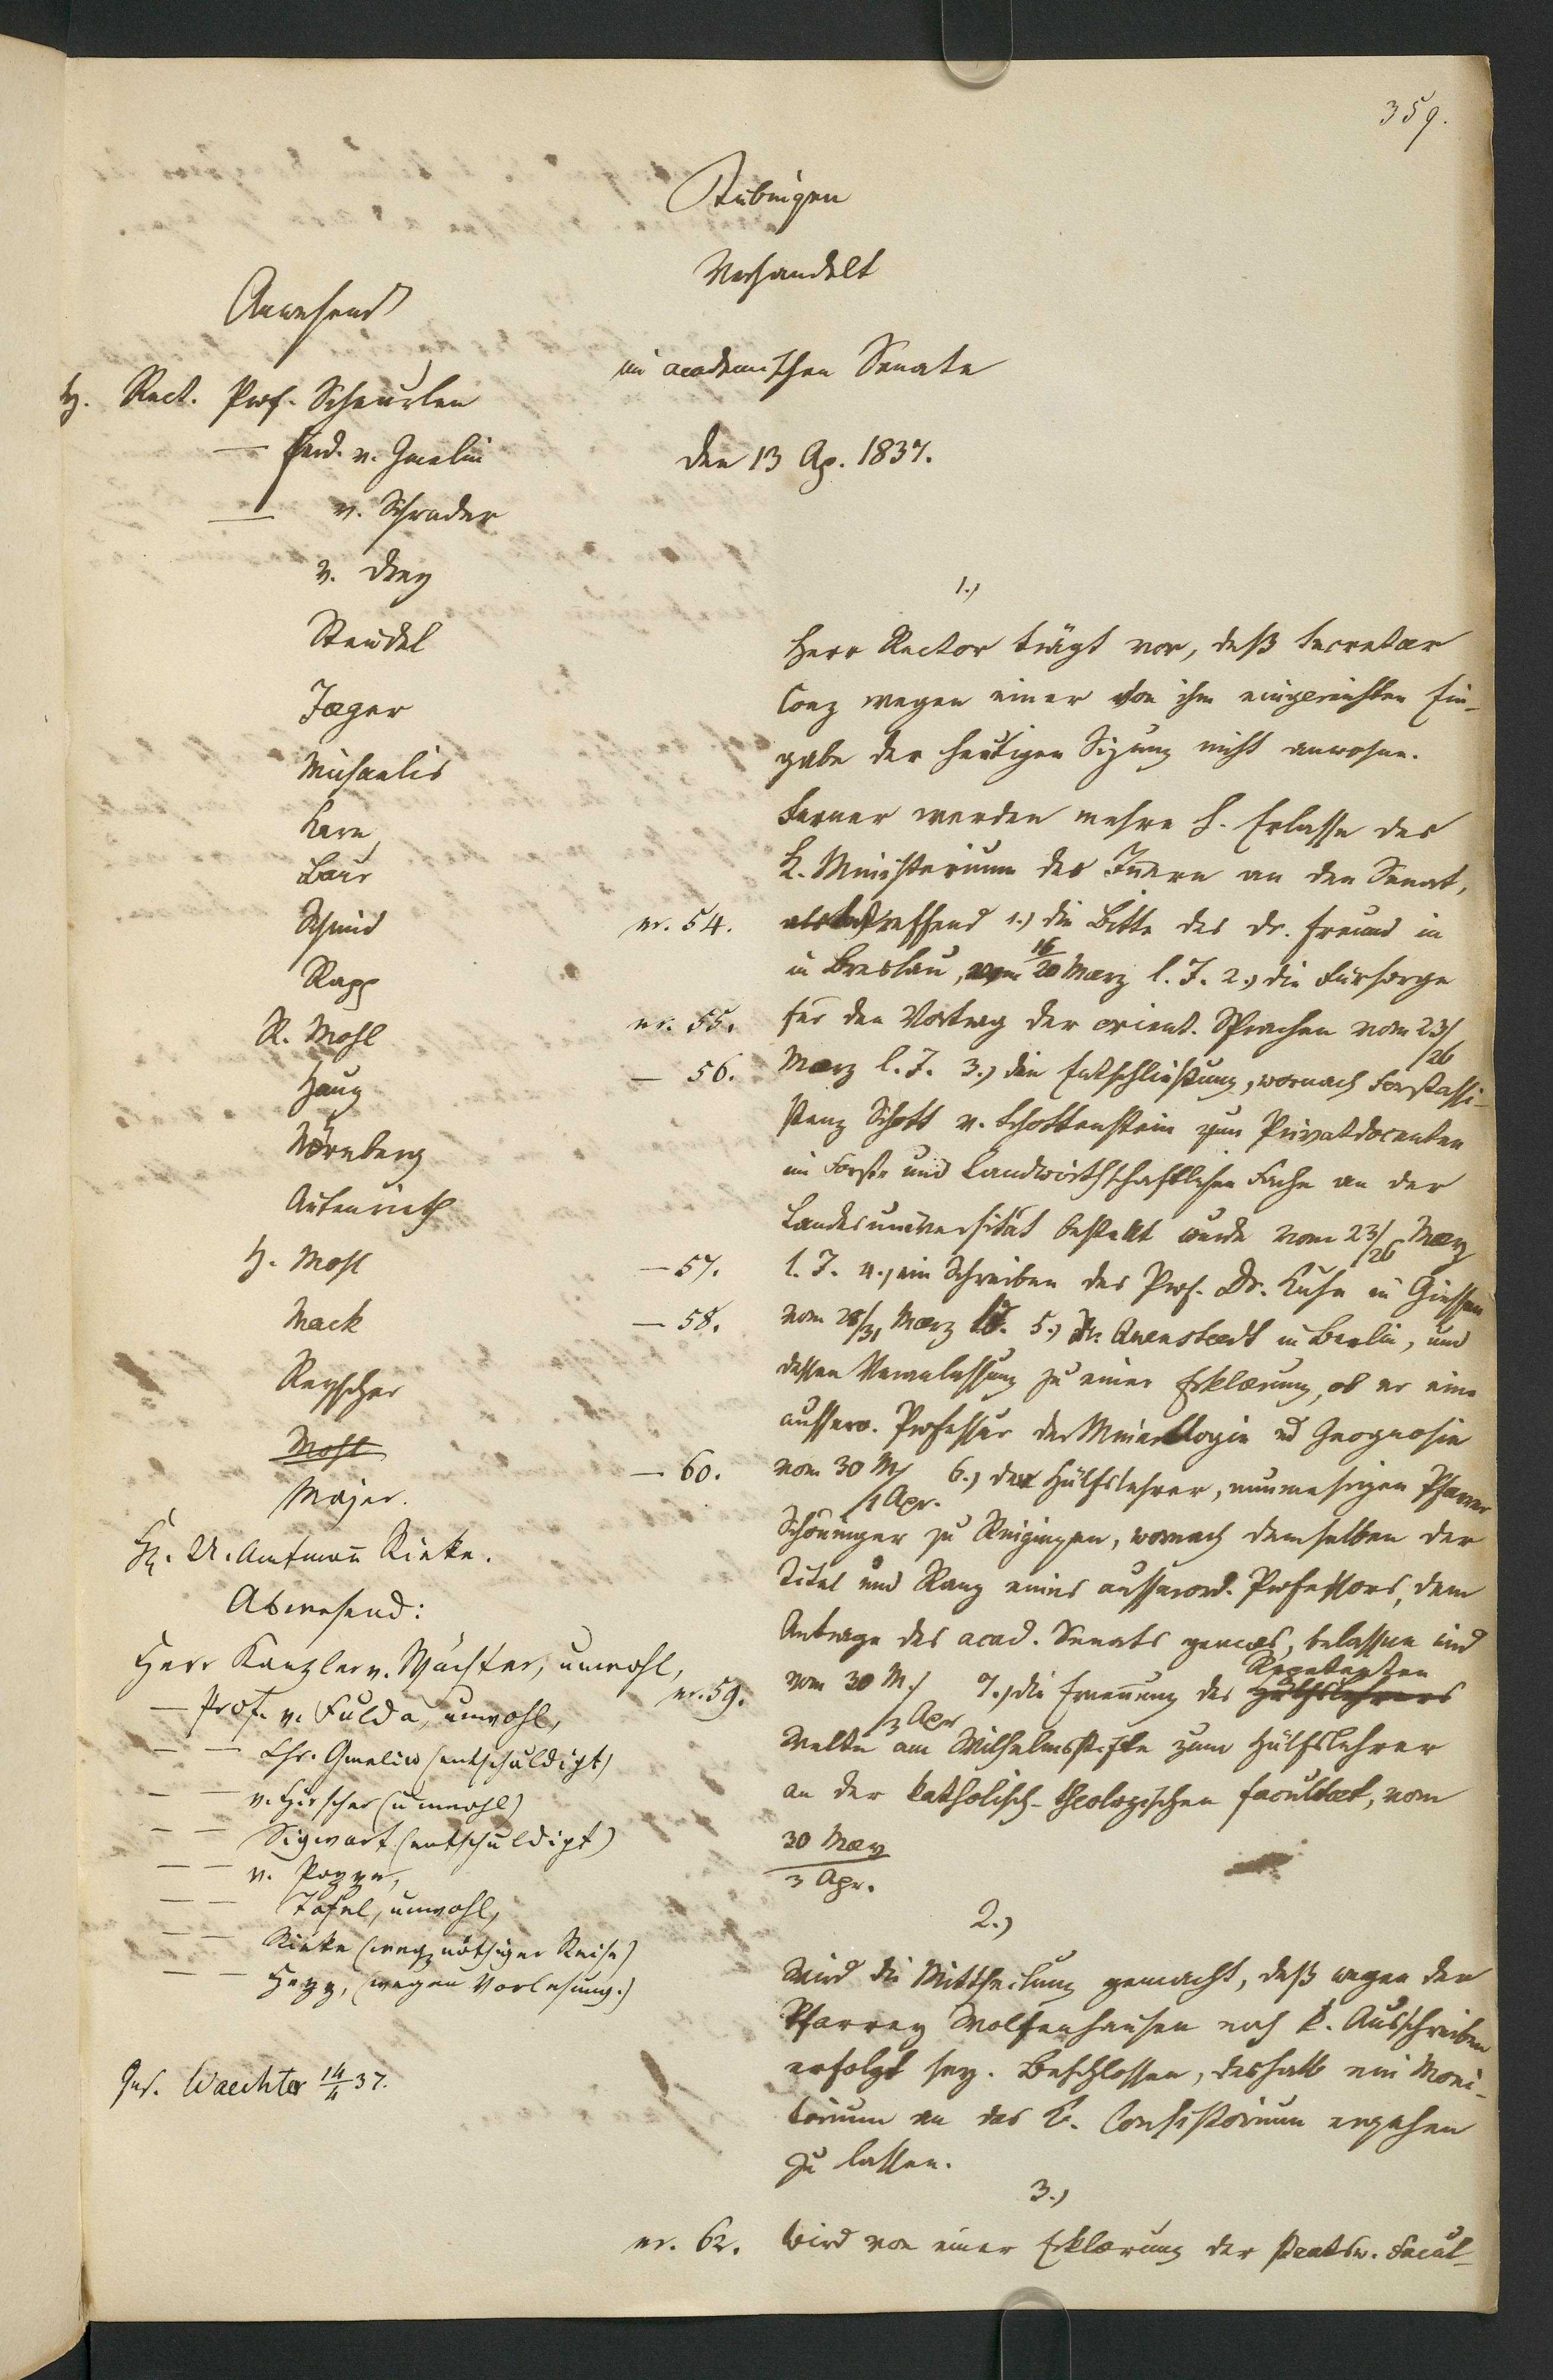 359.
Tübingen
Verhandelt
im academischen Senate
den 13 Ap. 1837.
Anwesend
H. Rect. Prof. Scheurlen
— Ferd. v. Gmelin
— v. Schrader
v. Drey
Steudel
Jæger
Michaelis
Kern
Baur
Schmid
Rapp
R. Mohl
Haug
Nörnberg
Autenrieth
H. Mohl
Mack
Reyscher
Mohl
Majer.
H. U. Amtmann Rieke.
Abwesend:
Herr Kanzler v. Wächter, unwohl,
— Prof. v. Fulda, unwohl,
— — Chr. Gmelin (entschuldigt)
— — v. Hirscher (unwohl)
— — Sigwart (entschuldigt)
— — v. Poppe,
— — Tafel, unwohl,
— — Rieke (weg. nöthiger Reise)
— — Hepp, (wegen Vorlesung.)
Ins. Waechter 14/4 37.
1.)
Herr Rector trägt vor, daß Secretær
Conz wegen einer von ihm eingereichten Ein-
gabe der heutigen Sizung nicht anwohne.
Ferner werden mehre h. Erlasse des
K. Ministerium des Innern an den Senat,
nr. 54. betreffend 1.) die Bitte des Dr. Freund in
in Breslau, vom 16/20 März l. J. 2.) die Fürsorge
nr. 55. für den Vortrag der orient. Sprachen vom 23/26
— 56. März l. J. 3.) die Entschließung, wornach Forstassi-
stenz Schott v. Schottenstein zum Privatdocenten
im Forst- und Landwirthschaftlichen Fache an der
Landesuniversität bestellt wurde vom 23/26 März
— 57. l. J. 4.) ein Schreiben des Prof. Dr. Kuhn in Giessen
— 58. vom 28/31 März l. J. 5.) Dr. Quenstædt in Berlin, und
dessen Veranlassung zu einer Erklærung, ob er eine
ausserо. Professur der Mineralogie und Geognosie
— 60. vom 30 M/1 Apr. 6.) der Hülfslehrer, nunmehrigen Pfarrer
Schöninger zu, wornach demselben der
Titel und Rang eines ausserord. Professors, dem
Antrage des acad. Senats gemæs, belassen und
nr. 59. vom 30 M./3 Apr 7.) die Ernennung des Hülfslehrers Repetenten
Welte am Wilhelmsstifte zum Hülfslehrer
an der katholisch-theologischen Facultæt, vom
30 März
3 Apr.
2.)
Wird die Mittheilung gemacht, daß wegen der
Pfarrey Wolfenhausen noch k. Ausschreiben
erfolgt sey. Beschlossen, deshalb ein Moni-
torium an das K. Consistorium ergehen
zu lassen.
3.)
nr. 62. Wird von einer Erklærung der staatsw. Facul-